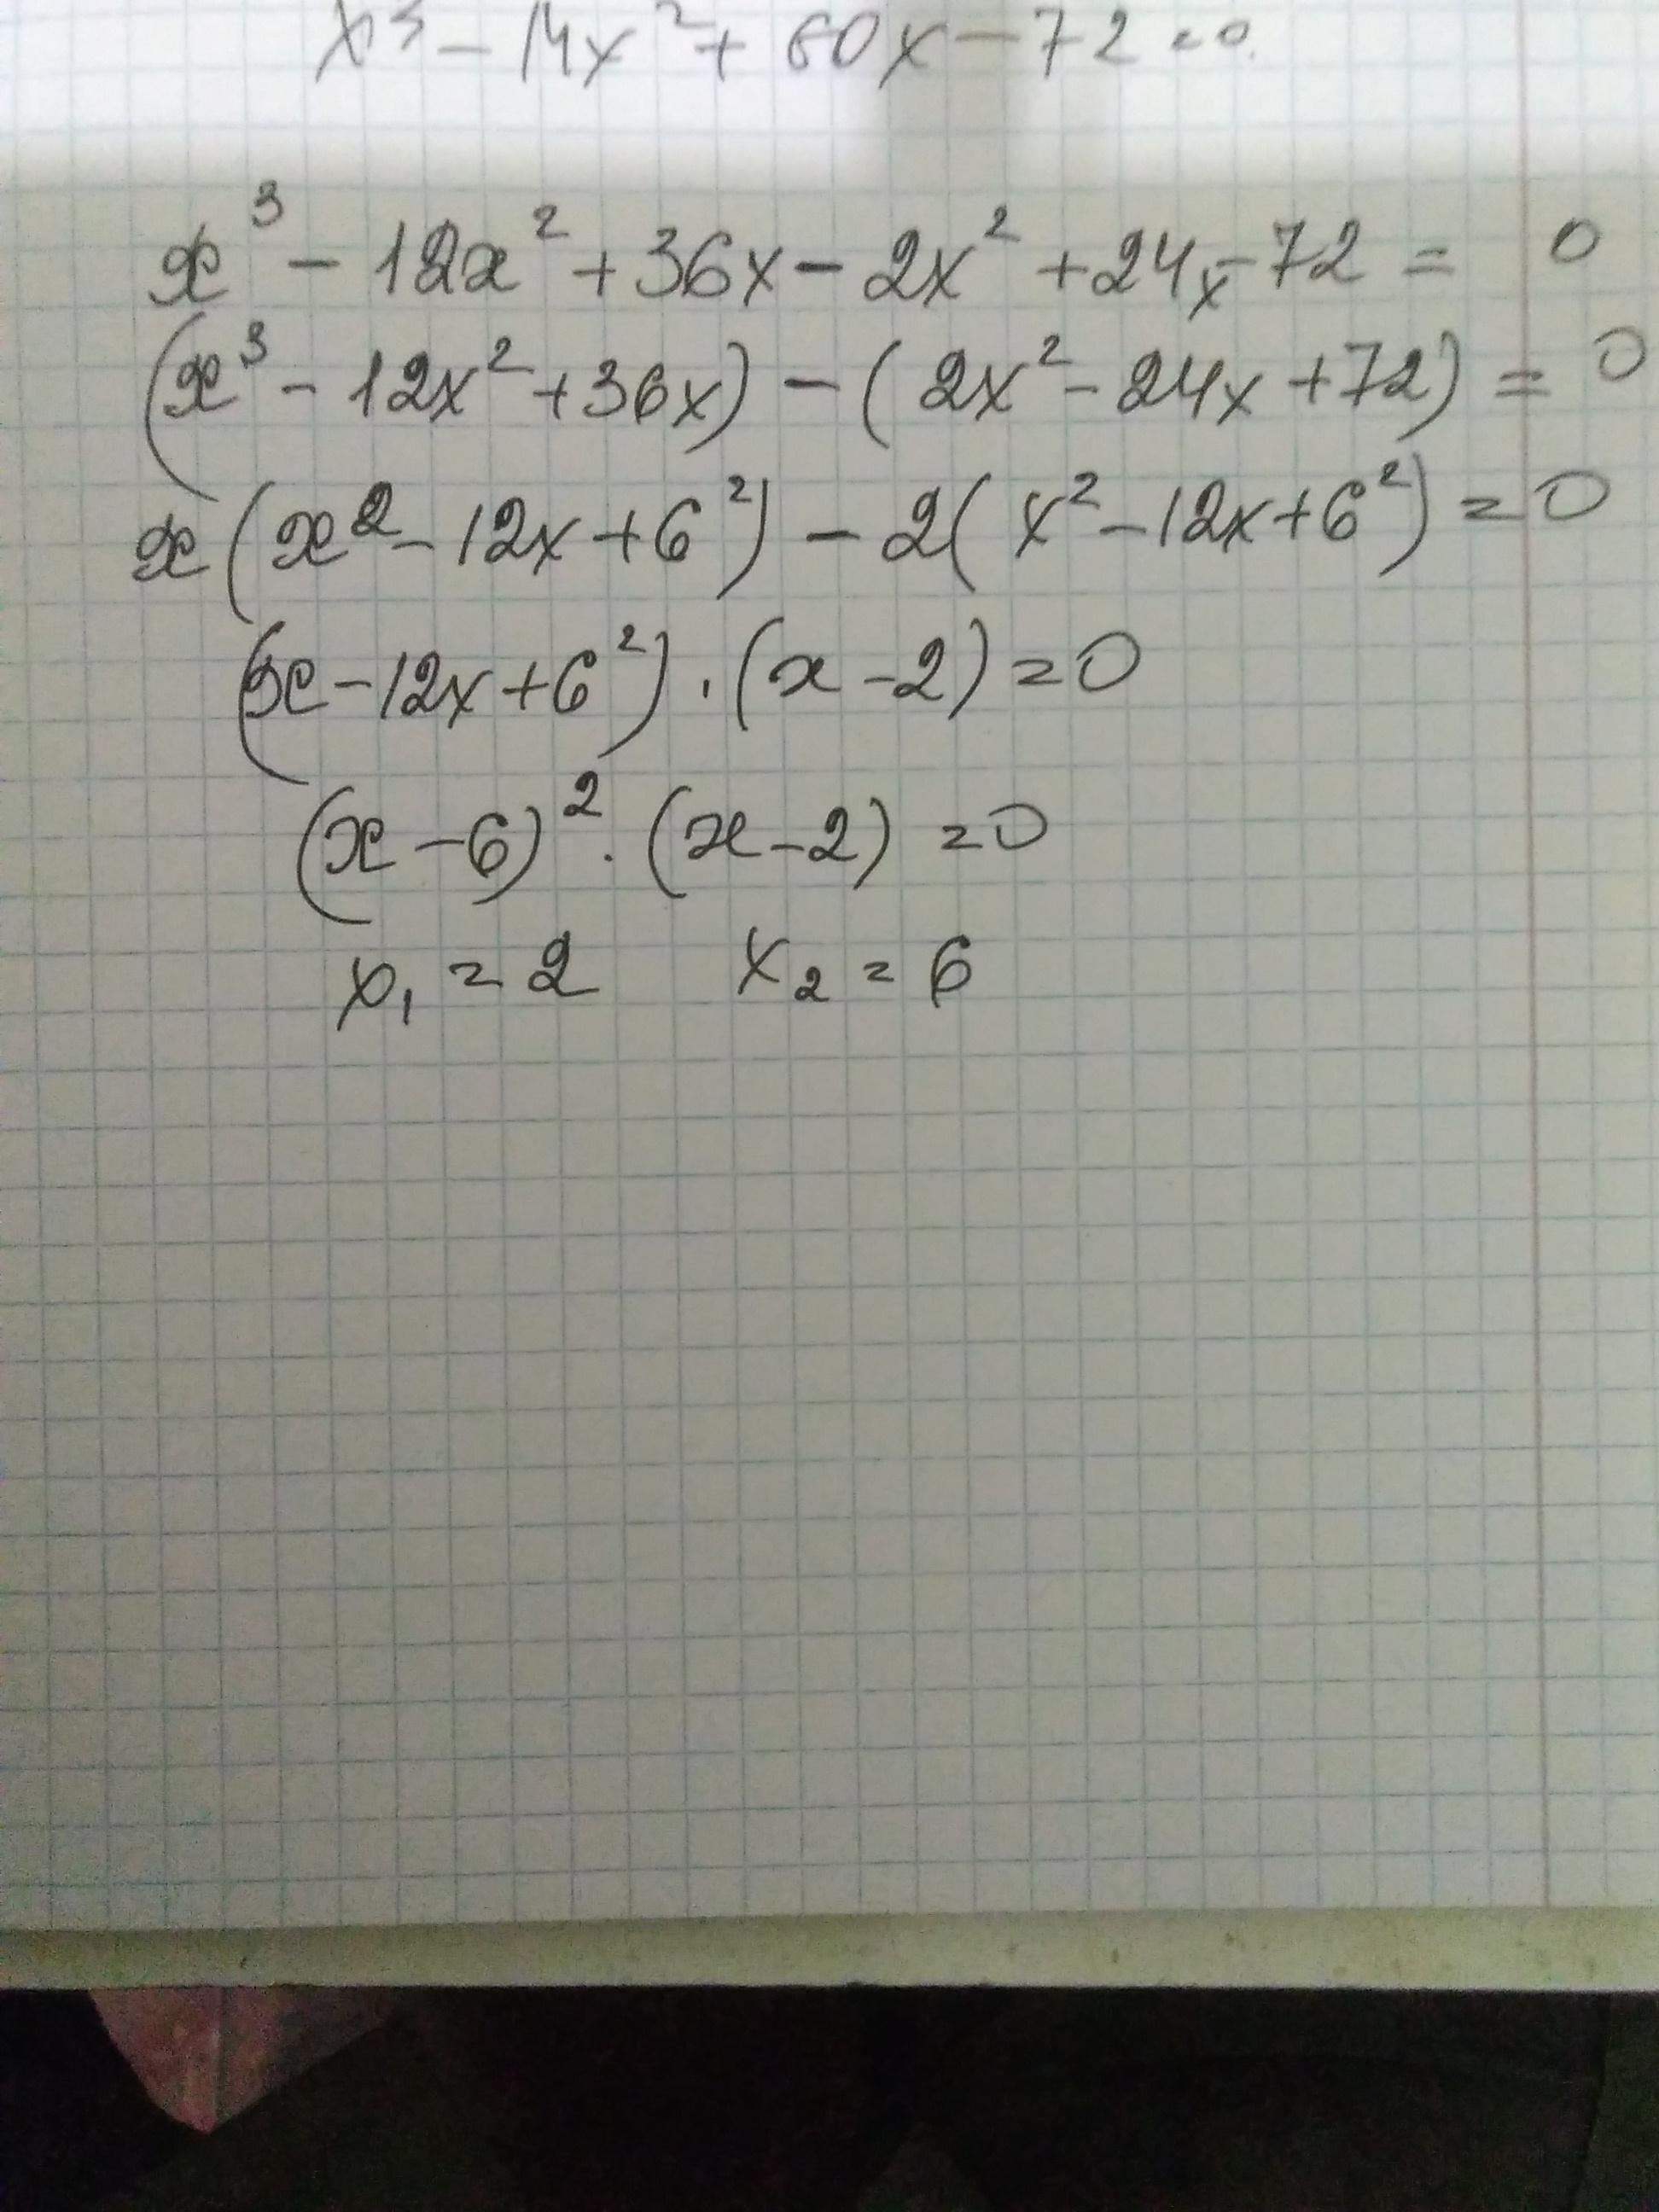 x³ - 14x² + 60x - 72 = 0
x³ - 12x² + 36x - 2x² + 24x - 72 = 0
(x³ - 12x² + 36x) - (2x² - 24x + 72) = 0
x(x² - 12x + 6²) - 2(x² - 12x + 6²) = 0
(x - 12x + 6²) · (x - 2) = 0
(x - 6)² · (x - 2) = 0
x₁ = 2 x₂ = 6